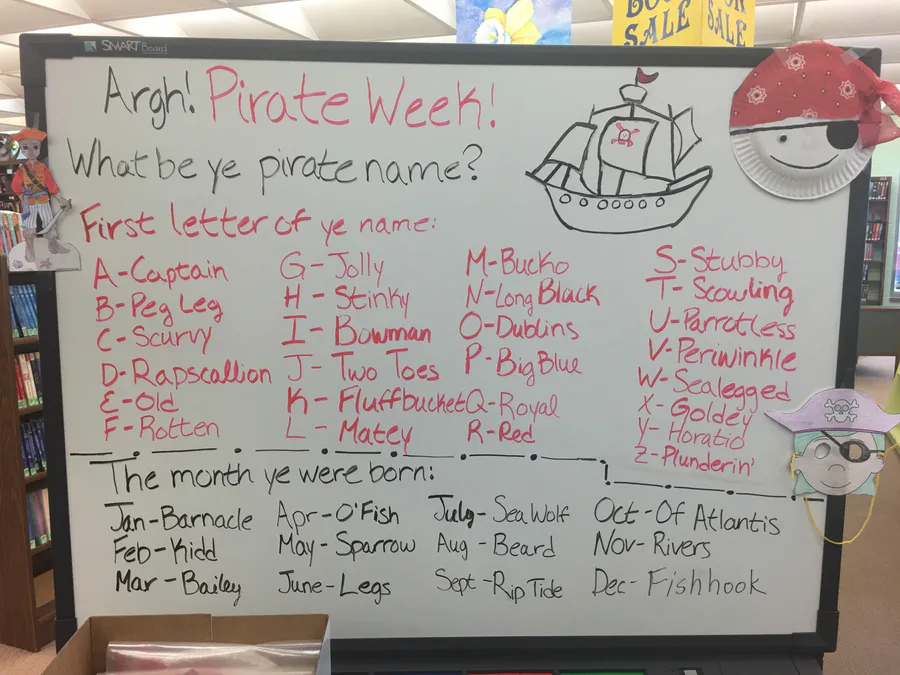 SMART Board
BOOK FOR
SALE SALE
Argh! Pirate Week!
What be ye pirate name?
First letter of ye name:
A-Captain
B-Peg Leg
C-Scurvy
D-Rapscallion
E-Old
F-Rotten
G-Jolly
H-Stinky
I-Bowman
J-Two Toes
K-Fluffbucket
L-Matey
M-Bucko
N-Long Black
O-Dublins
P-Big Blue
Q-Royal
R-Red
S-Stubby
T-Scowling
U-Parrotless
V-Periwinkle
W-Sealegged
X-Goldey
Y-Horatio
Z-Plunderin'
The month ye were born:
Jan-Barnacle
Feb-Kidd
Mar-Bailey
Apr-O'Fish
May-Sparrow
June-Legs
July-Sea Wolf
Aug-Beard
Sept-Rip Tide
Oct-Of Atlantis
Nov-Rivers
Dec-Fishhook